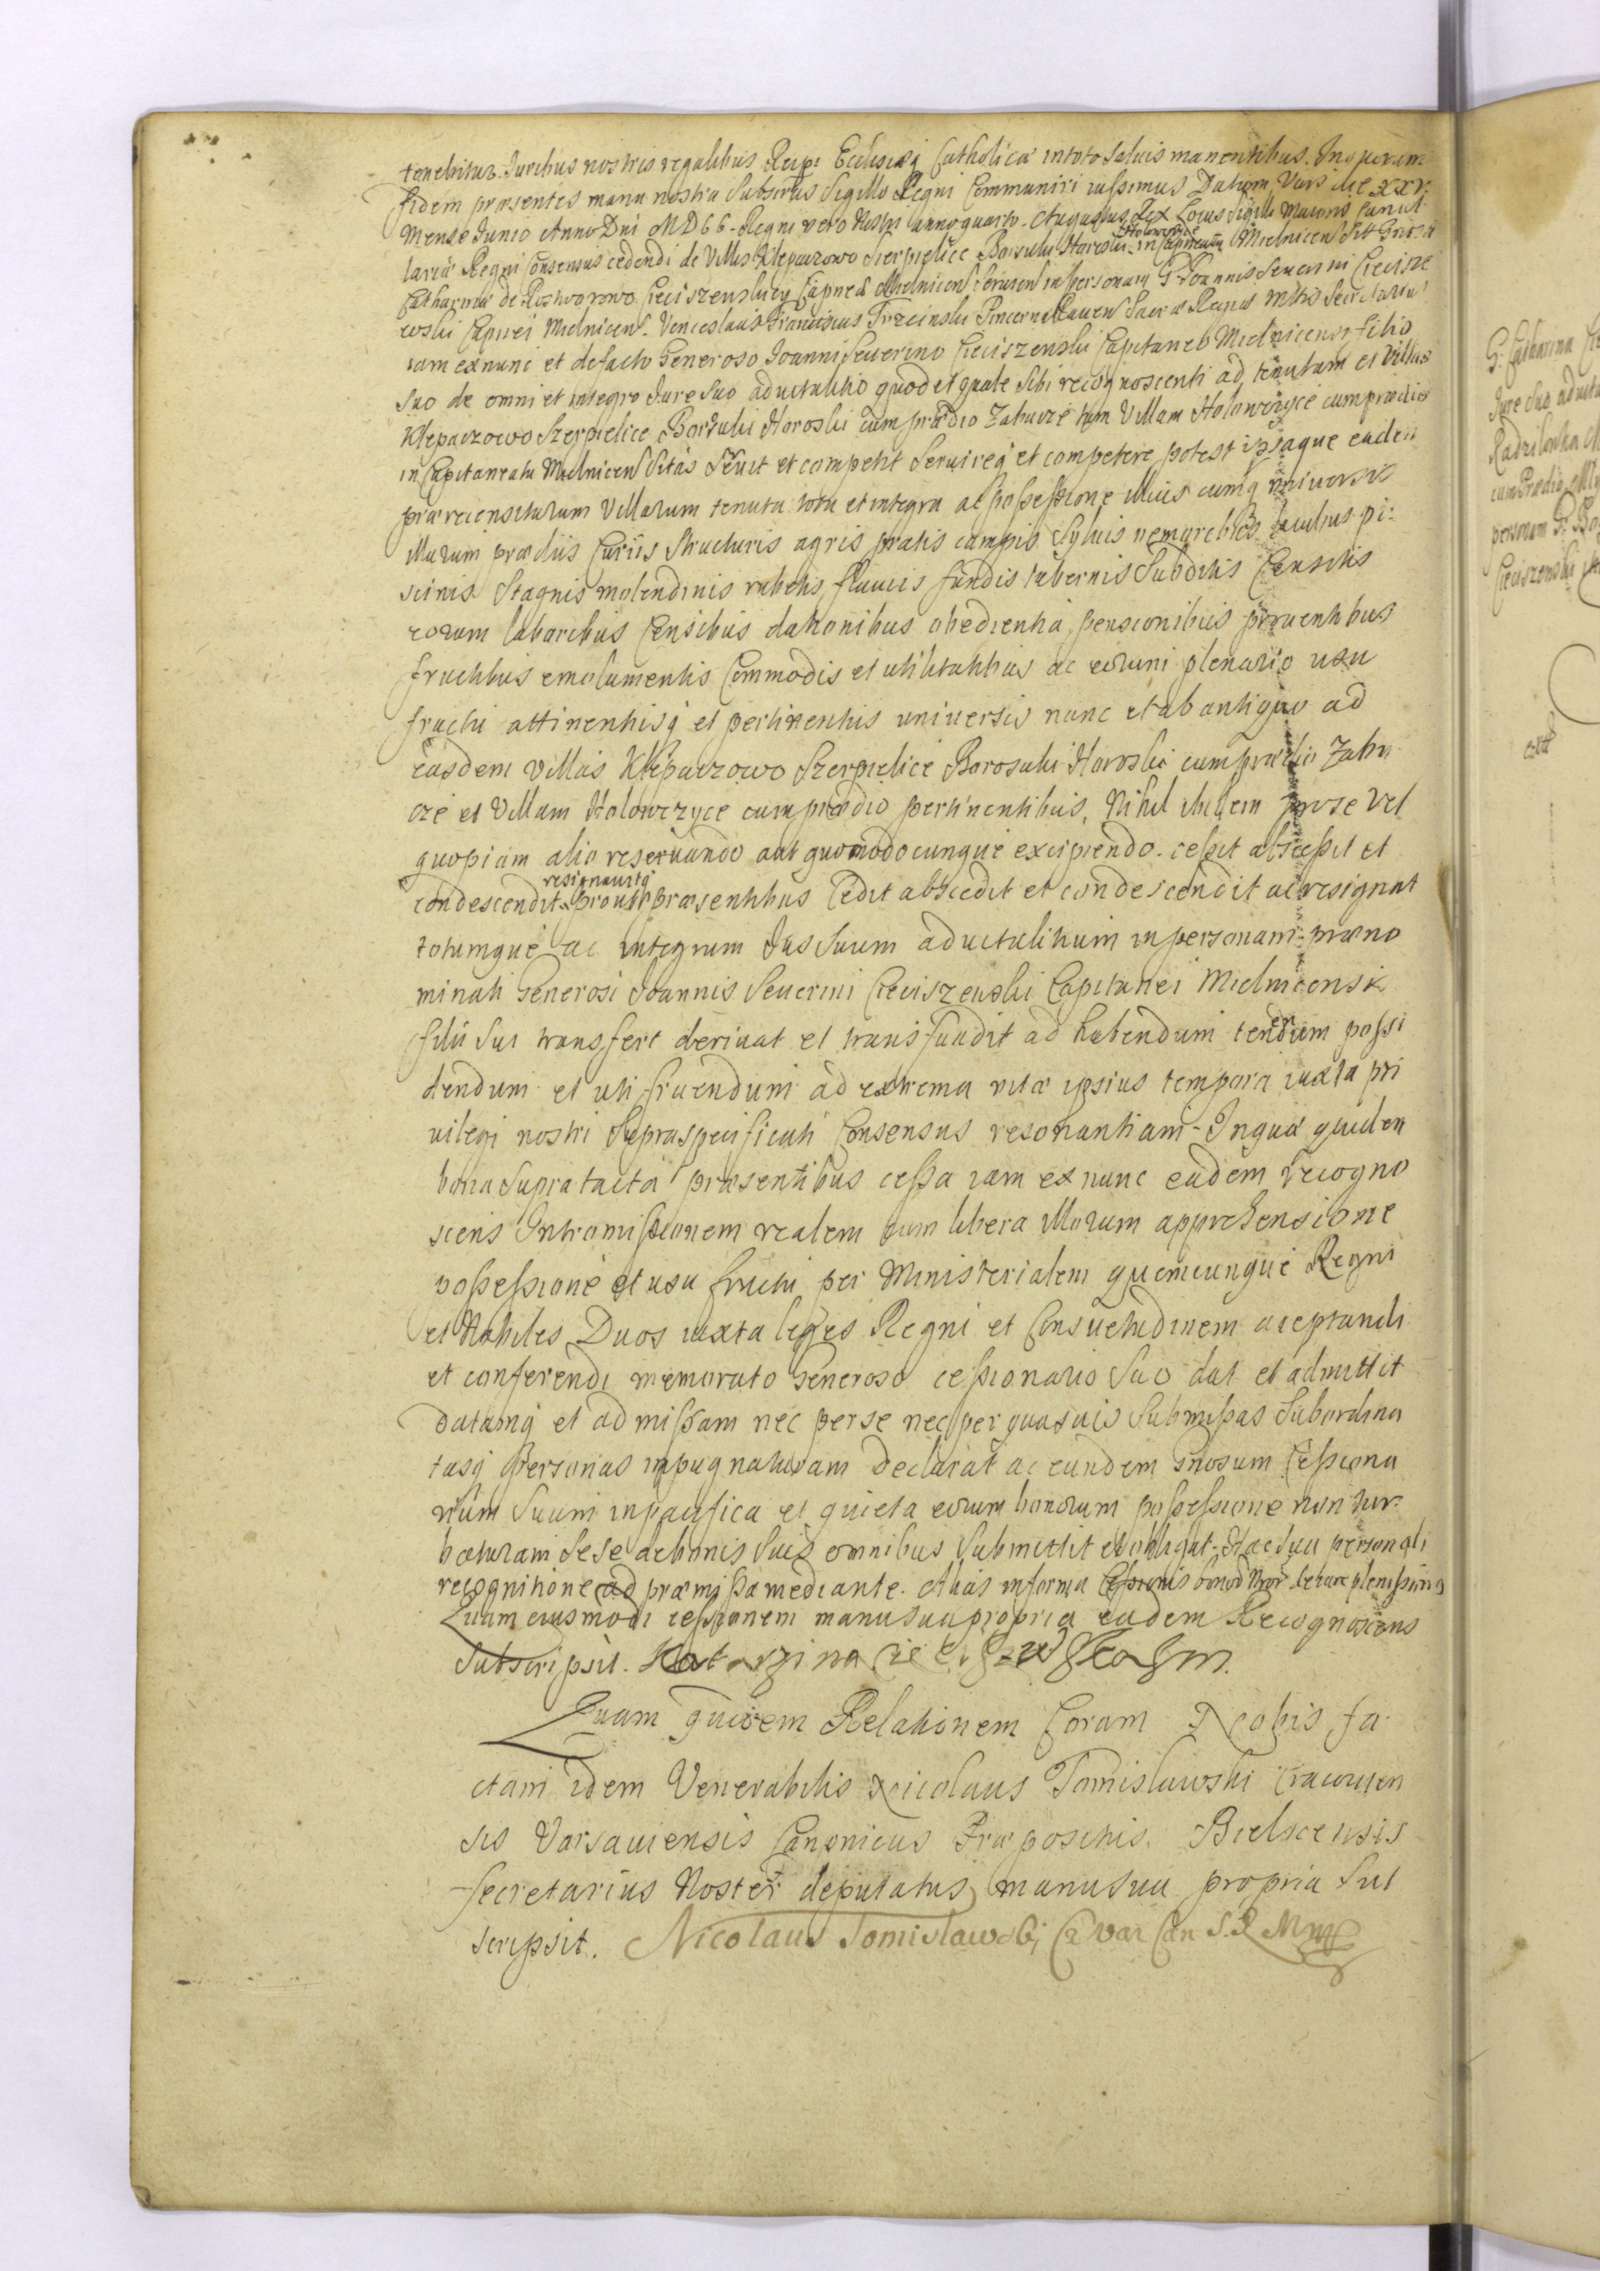 tenebitur. Juribus nostris regalibus Reipce Ecclesiæq Catholicæ in toto Saluis manentibus. In quorum
fidem præsentes manu nostra Subscriptas Sigillo Regni Communiri iussimus Datum Vars die XXV.
Mense Junio Anno Dni MD66. Regni vero Nostri anno quarto. Augustus Rex Locus Sigilli Maioris Cancel
lariæ Regni Consensus cedendi de Villis Klepaczowo Sierpielice Borsuki Horoszki Holowczice in Capitneatu Mielnicen Sitis Gnosæ
Catharinæ de Roztworowo Cieciszenskiey Capneæ Mielnicen Seruien in personam G Joannis Seuerini Ciecisze
wski Capnei Mielnicen. Venceslaus Franciscus Trzcinski Pincerna Rauen Sacræ Regiæ Mttis Secretarius
iam exnunc et defacto Generoso Joanni Seuerino Cieciszenski Capitaneo Mielnicensi filio
suo de omni et integro Jure Suo aduitalitio quod et quale Sibi recognoscenti ad tenutam et Villas
Klepaczowo Szerpielice Borsuki Horoszki cum prædio Zabuże tum Villam Holowczyce cum prædiis
in Capitaneatu Mielnicen Sitas Seruit et competit Seruireq et competere potest ipsaque eadem
præreciensitarum Villarum tenuta tota et integra ac possessione illius cumq universis
illarum prædiis Curiis Structuris agris pratis campis Syluis nemoribus lacubus pi:
scinis Stagnis molendinis rubetis, fluuiis fundis tabernis Subditis Censitis
eorum laboribus Censibus dationibus obedientia, pensionibus prouentibus
fructibus emolumentis Commodis et utilitatibus ac eorum plenario usu
fructu attinentiisq et pertinentiis universis nunc et ab antiquo ad
easdem Villas Klepaczowo Szerpielice Borosuki Horoszki cum prædio Zabu
że et Villam Holowczyce cum prædio pertinentibus, Nihil ibidem pro se vel
quopiam alio reseruando aut quomodocunque excipiendo. cessit abscessit et
condescendit resignauitq prout præsentibus Cedit abscedit et condescendit ac resignat
totumque ac integrum Jus Suum aduitalitium in personam præno
minati Generosi Joannis Seuerini Cieciszenski Capitanei Mielnicensis
filii Sui transfert deriuat et transfundit ad habendum tenendum possi
dendum et uti fruendum ad extrema vitæ ipsius tempora iuxta pri
uilegi nostri Supraspecificati Consensus resonantiam. In quæ quidem
bona supratacta præsentibus cessa iam exnunc eadem recogno
scens Intromissionem realem cum libera illorum apprehensione
possessione et usu fructu per Ministerialem quemcunque Regni
et Nobiles Duos iuxta leges Regni et Consuetudinem aceptandi
et conferendi memorato Generoso cessionario Suo dat et admittit
datamq et admissam nec per se nec per quasuis Submissas Subordina
tasq Personas inpugnaturam declarat ac eundem Gnosum Cessiona
rium Suum in pacifica et quieta eorum bonorum possessione non tur
baturam Sese de bonis Suis omnibus Submittit et obligat. Hac Sua personali
recognitione ad præmissa mediante. Alias in forma Cessionis
Quam eiusmodi cessionem manu sua propria eadem Recognoscens
Subscripsit. Katarzina Cieciszewska
Quam quidem Relationem Coram Nobis fa
ctam idem Venerabilis Nicolaus Tomislawski Cracouien
sis Varsauiensis Canonicus Præpositus Bielscensis
Secretarius Noster deputatus manu sua propria sub
scripsit. Nicolaus Tomislawski
G. Catharina
Jure Suo
cum Prædio
personam G.
Cieciszenski